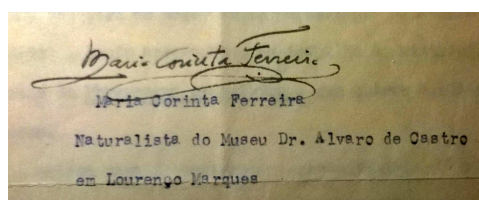 Maria Corinta Ferreira
Maria Corinta Ferreira
Naturalista do Museu Dr. Alvaro de Castro
em Lourenço Marques